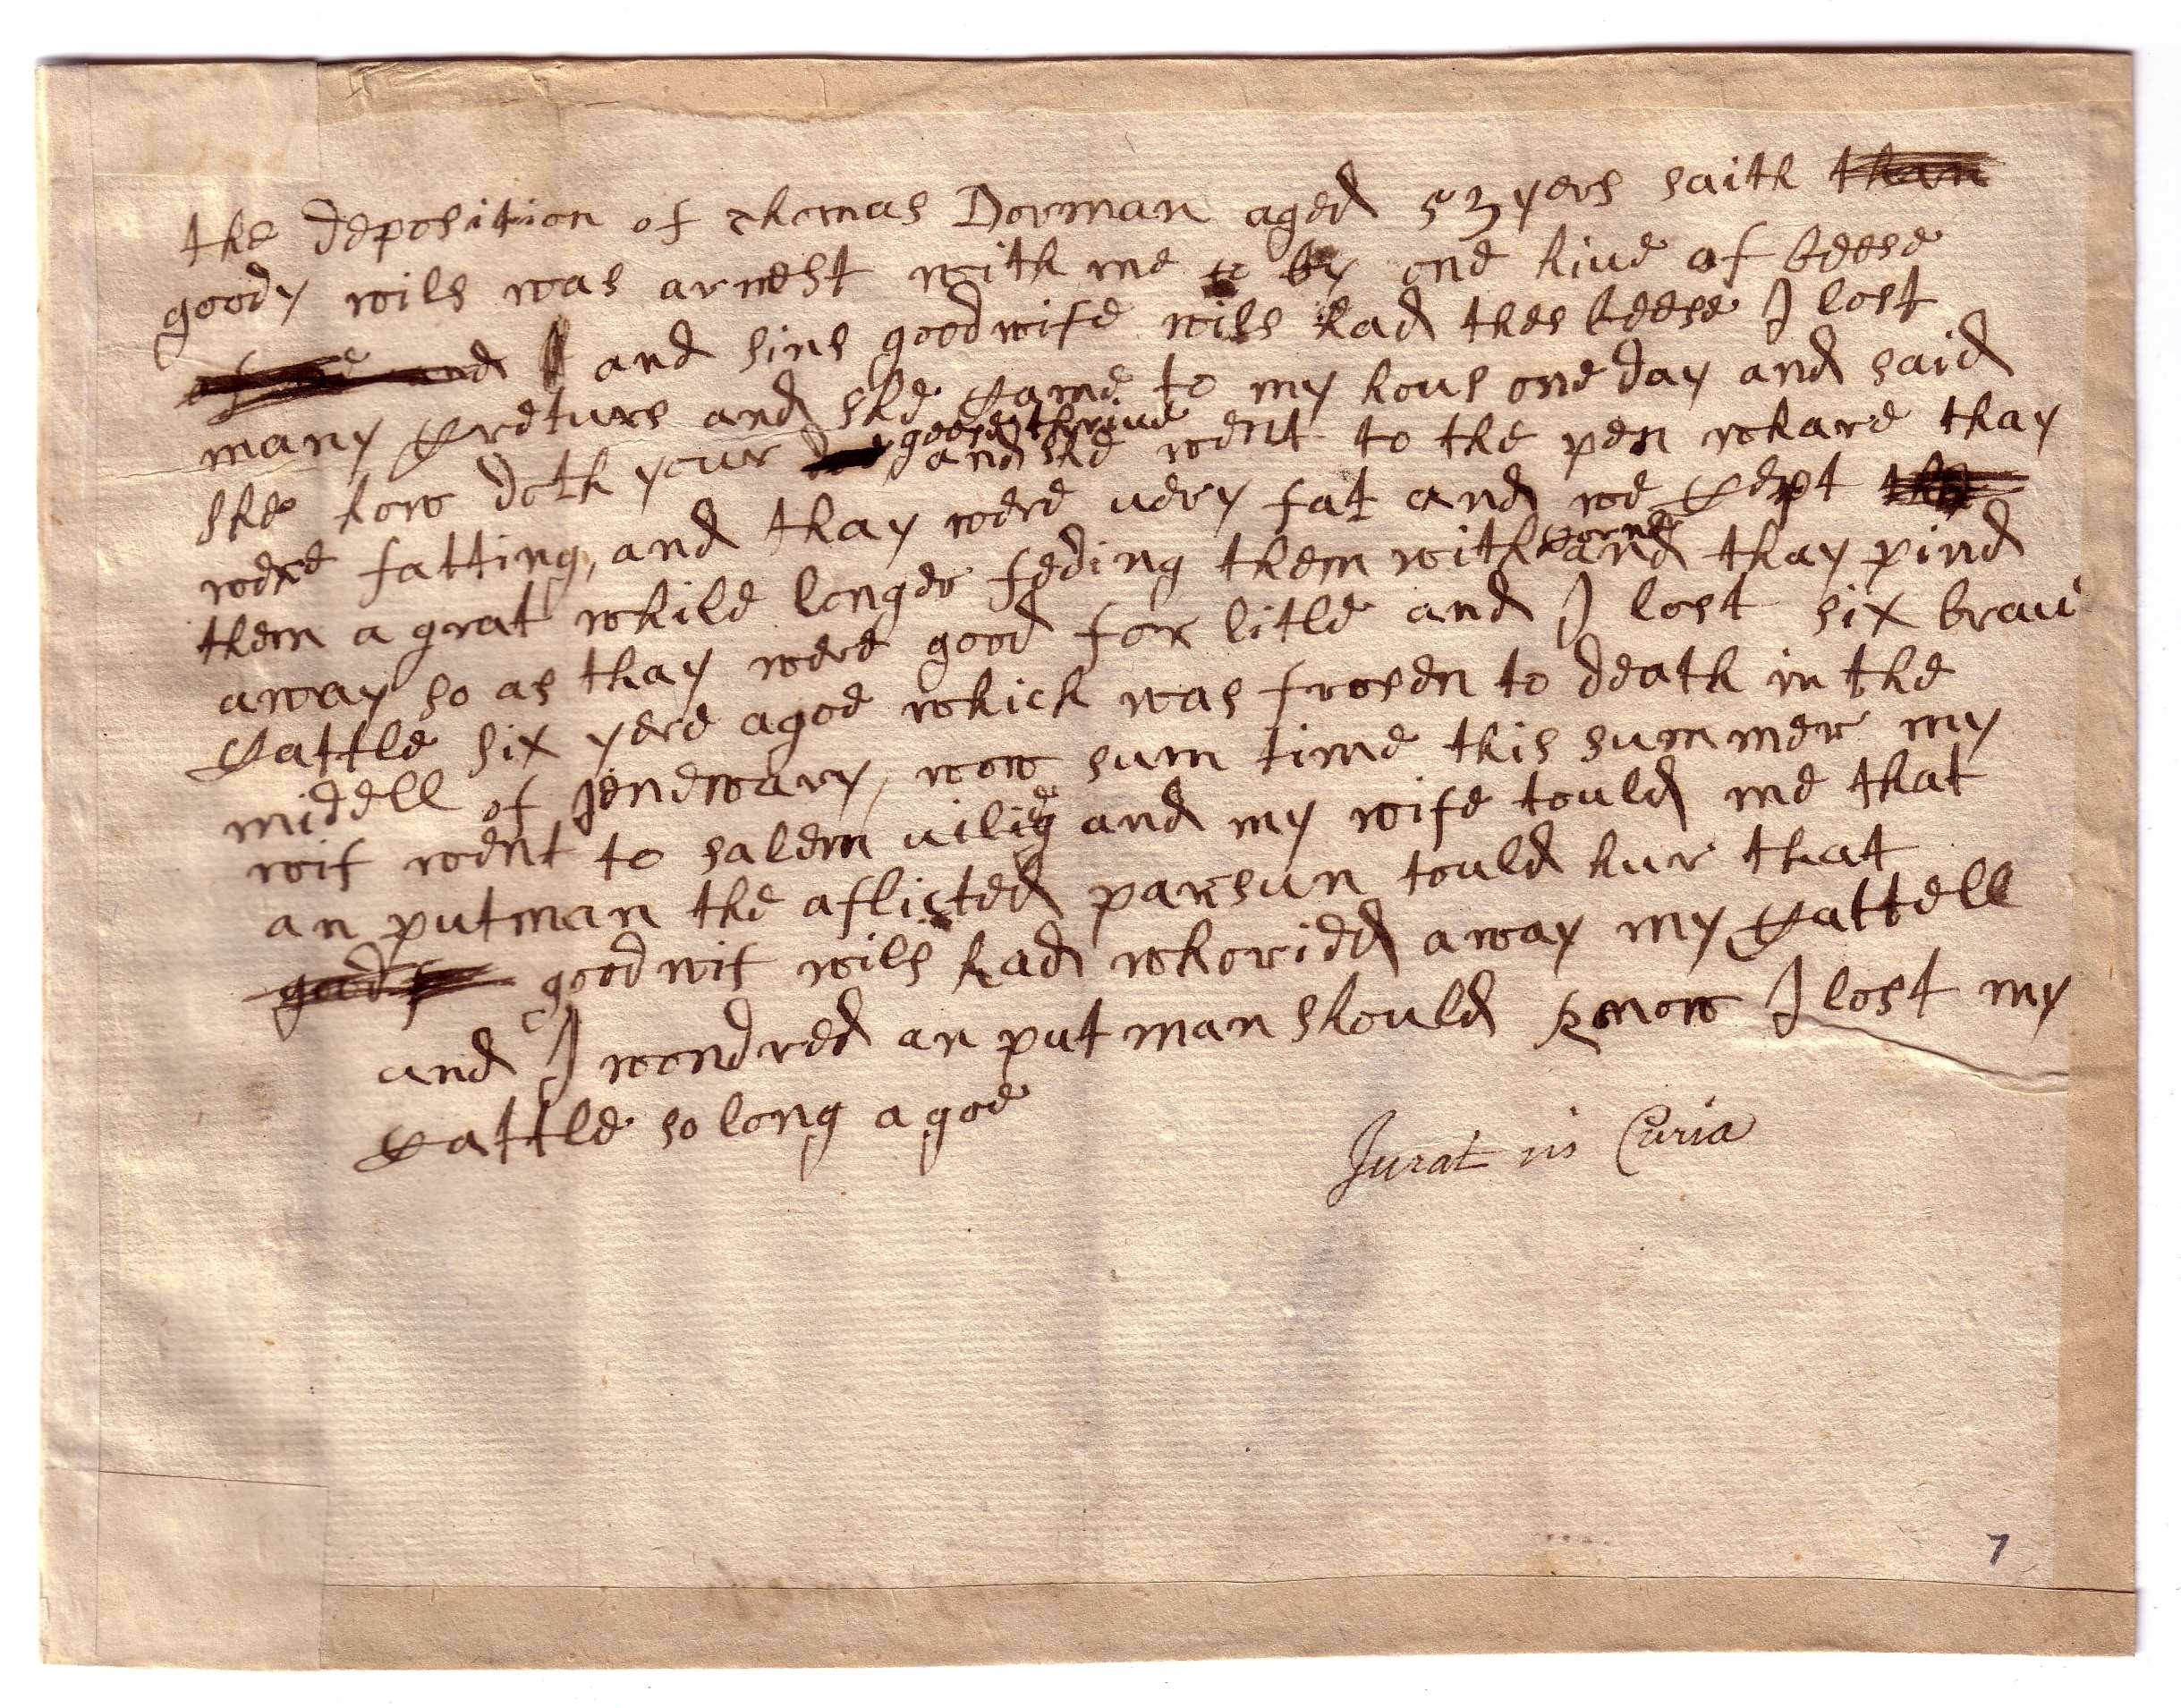 the deposition of thomas Dorman aged 53 yers saith than
goody wils was arnest with me to by one hiue of beese
and and sins goodwife wils had thes beese I lost
many creturs and she came to my hous one day and said
geese thriue
she how doth your and she went to the pen whare thay
were fatting, and thay were uery fat and we cept
corne
them a grat while longer feding them with and thay pind
away so as thay were good for litle and I lost six braue
cattle six yere agoe which was frosen to death in the
midell of Jenewary, now sum time this summer my
wif went to salem uilieg and my wife tould me that
an putman the aflicted parsun tould hur that
good goodwif wils had whoridd away my cattell
and I wondred an putman should know I lost my
cattle so long agoe
Jurat in Curia
7